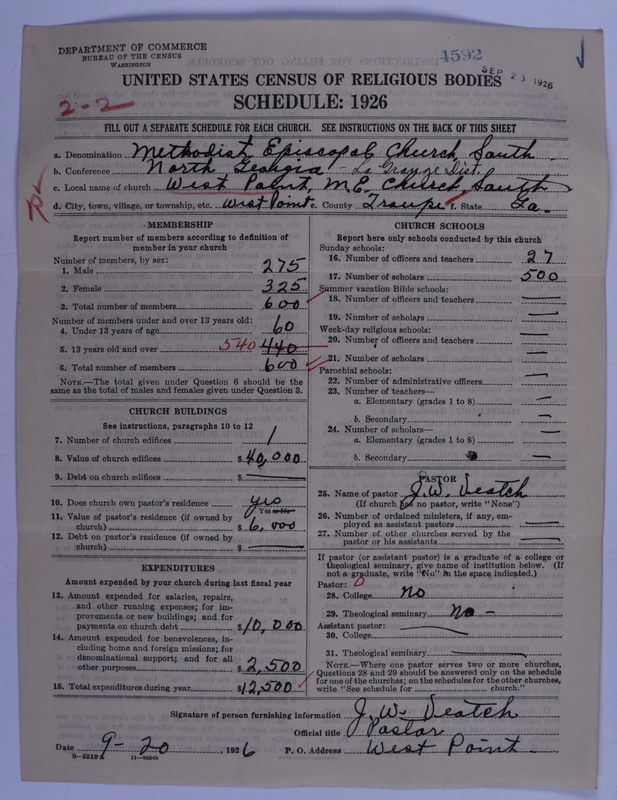 DEPARTMENT OF COMMERCE
BUREAU OF THE CENSUS
WASHINGTON
4592
SEP 23 1926
UNITED STATES CENSUS OF RELIGIOUS BODIES
2-2
SCHEDULE: 1926
FILL OUT A SEPARATE SCHEDULE FOR EACH CHURCH. SEE INSTRUCTIONS ON THE BACK OF THIS SHEET
a. Denomination Methodist Episcopal Church, South
b. Conference North Georgia - La Grange Dist.
c. Local name of church West Point, M.E. Church, South
d. City, town, village, or township, etc. West Point e. County Troupe f. State Ga.
MEMBERSHIP
Report number of members according to definition of member in your church
Number of members, by sex:
1. Male 275
2. Female 325
3. Total number of members 600
Number of members under and over 13 years old:
4. Under 13 years of age 60
5. 13 years old and over 540 440
6. Total number of members 600
NOTE.—The total given under Question 6 should be the same as the total of males and females given under Question 3.
CHURCH BUILDINGS
See instructions, paragraphs 10 to 12
7. Number of church edifices 1
8. Value of church edifices $40,000
9. Debt on church edifices $ —
10. Does church own pastor's residence yes
Yes or No
11. Value of pastor's residence (if owned by church) $6,000
12. Debt on pastor's residence (if owned by church) $ —
EXPENDITURES
Amount expended by your church during last fiscal year
13. Amount expended for salaries, repairs, and other running expenses; for improvements or new buildings; and for payments on church debt $10,000
14. Amount expended for benevolences, including home and foreign missions; for denominational support; and for all other purposes $2,500
15. Total expenditures during year $12,500
CHURCH SCHOOLS
Report here only schools conducted by this church
Sunday schools:
16. Number of officers and teachers 27
17. Number of scholars 500
Summer vacation Bible schools:
18. Number of officers and teachers —
19. Number of scholars —
Week-day religious schools:
20. Number of officers and teachers —
21. Number of scholars —
Parochial schools:
22. Number of administrative officers —
23. Number of teachers—
a. Elementary (grades 1 to 8) —
b. Secondary —
24. Number of scholars—
a. Elementary (grades 1 to 8) —
b. Secondary —
PASTOR
25. Name of pastor J.W. Veatch
(If church has no pastor, write "None")
26. Number of ordained ministers, if any, employed as assistant pastors —
27. Number of other churches served by the pastor or his assistants —
If pastor (or assistant pastor) is a graduate of a college or theological seminary, give name of institution below. (If not a graduate, write "No" in the space indicated.)
Pastor: 0
28. College No
29. Theological seminary No —
Assistant pastor:
30. College —
31. Theological seminary —
NOTE.—Where one pastor serves two or more churches, Questions 28 and 29 should be answered only on the schedule for one of the churches; on the schedules for the other churches, write "See schedule for church."
Signature of person furnishing information J. W. Veatch
Official title Pastor
Date 9-20, 1926 P. O. Address West Point